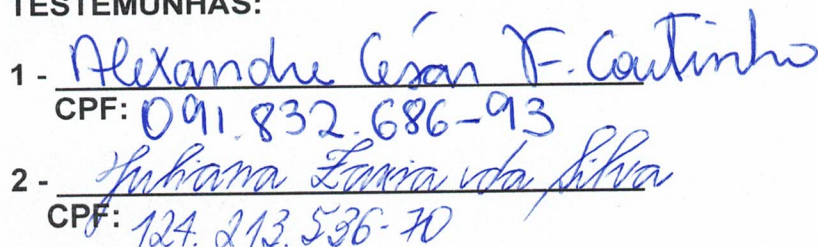 TESTEMUNHAS:
1 - Alexandre César F. Coutinho
CPF: 091.832.686-93
2 - Juliana Faria da Silva
CPF: 124.213.536-70